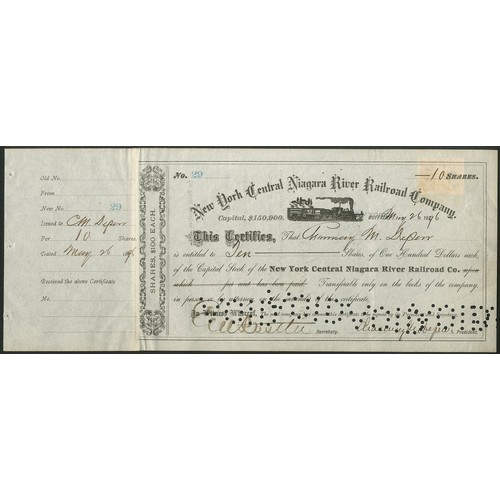 Old No.
From
New No. 29
Issued to C.M. Depew
For 10 Shares
Dated May 26 1896
Received the above Certificate
No.
SHARES, $100 EACH.
No. 29
—10 SHARES.
New York Central Niagara River Railroad Company.
Capital, $150,000.
May 26 1896
This Certifies, That Chauncey M. Depew
is entitled to Ten Shares, of One Hundred Dollars each,
of the Capital Stock of the New York Central Niagara River Railroad Co. upon
which per cent has been paid. Transferable only on the books of the company,
in person or by attorney on the surrender of this certificate.
In Witness Whereof,
Chauncey M Depew
Secretary. President.